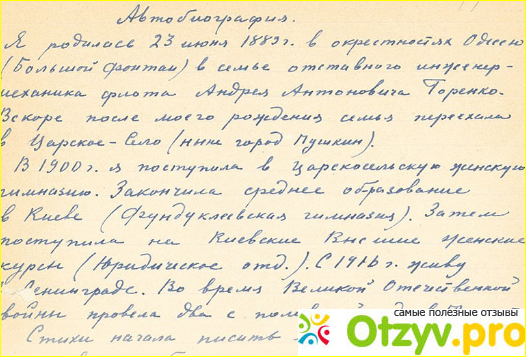 Автобиография.
Я родилась 23 июня 1889г. в окрестностях Одессы
(Большой Фонтан) в семье отставного инженер-
механика флота Андрея Антоновича Горенко.
Вскоре после моего рождения семья переехала
в Царское-Село (ныне город Пушкин).
В 1900г. я поступила в Царскосельскую женскую
гимназию. Закончила среднее образование
в Киеве (Фундуклеевская гимназия). Затем
поступила на Киевские Высшие женские
курсы (Юридическое отд.). С 1916г. живу
Ленинграде. Во время Великой Отечественной
войны провела два с
Стихи начала писать
самые полезные отзывы
Otzyv.pro